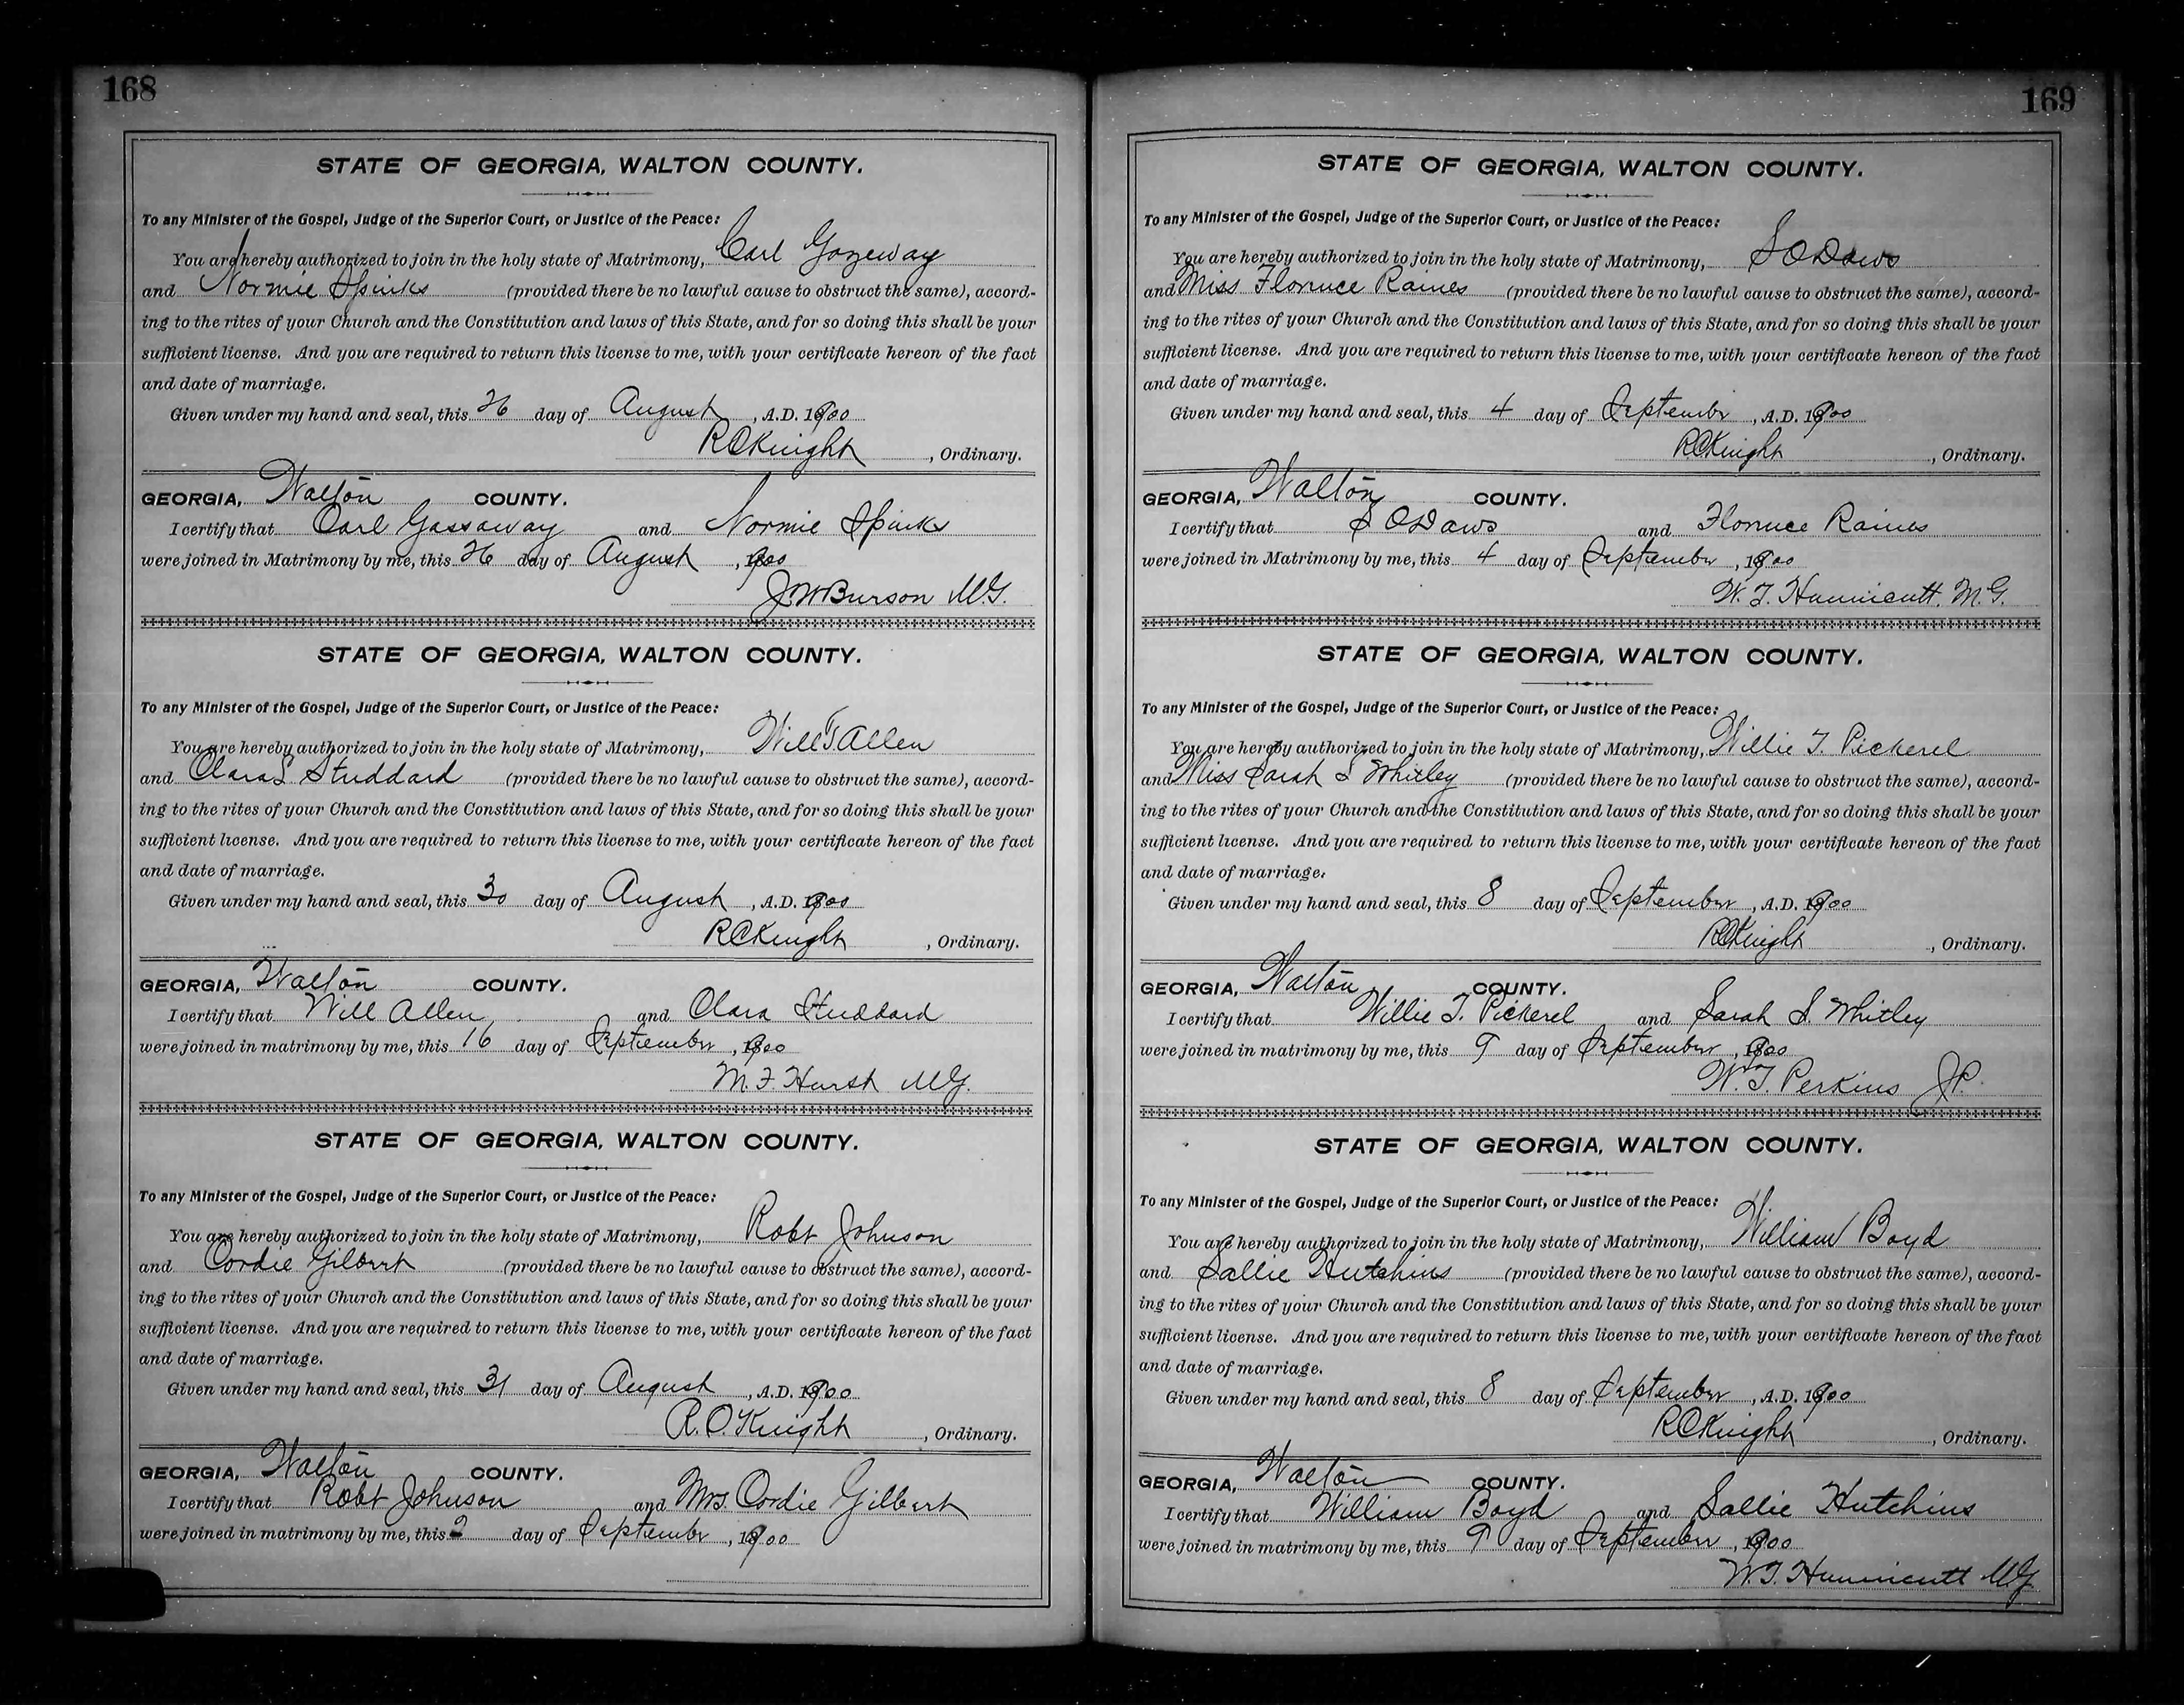 168
STATE OF GEORGIA, WALTON COUNTY.
To any Minister of the Gospel, Judge of the Superior Court, or Justice of the Peace:
You are hereby authorized to join in the holy state of Matrimony, Carl Gozeway
and Normie Spinks (provided there be no lawful cause to obstruct the same), accord-
ing to the rites of your Church and the Constitution and laws of this State, and for so doing this shall be your
sufficient license. And you are required to return this license to me, with your certificate hereon of the fact
and date of marriage.
Given under my hand and seal, this 26 day of August, A.D. 1900
R C Knight, Ordinary.
GEORGIA, Walton COUNTY.
I certify that Carl Gassaway and Normie Spinks
were joined in Matrimony by me, this 26 day of August, 1900
J. W. Burson M.G.
STATE OF GEORGIA, WALTON COUNTY.
To any Minister of the Gospel, Judge of the Superior Court, or Justice of the Peace:
You are hereby authorized to join in the holy state of Matrimony, Will T Allen
and Clara L Studdard (provided there be no lawful cause to obstruct the same), accord-
ing to the rites of your Church and the Constitution and laws of this State, and for so doing this shall be your
sufficient license. And you are required to return this license to me, with your certificate hereon of the fact
and date of marriage.
Given under my hand and seal, this 30 day of August, A.D. 1900
R C Knight, Ordinary.
GEORGIA, Walton COUNTY.
I certify that Will Allen and Clara Studdard
were joined in matrimony by me, this 16 day of September, 1900
M. F. Hurst M.G.
STATE OF GEORGIA, WALTON COUNTY.
To any Minister of the Gospel, Judge of the Superior Court, or Justice of the Peace:
You are hereby authorized to join in the holy state of Matrimony, Robt Johnson
and Cordie Gilbert (provided there be no lawful cause to obstruct the same), accord-
ing to the rites of your Church and the Constitution and laws of this State, and for so doing this shall be your
sufficient license. And you are required to return this license to me, with your certificate hereon of the fact
and date of marriage.
Given under my hand and seal, this 31 day of August, A.D. 1900
R. C. Knight, Ordinary.
GEORGIA, Walton COUNTY.
I certify that Robt Johnson and Mrs. Cordie Gilbert
were joined in matrimony by me, this 2 day of September, 1900
169
STATE OF GEORGIA, WALTON COUNTY.
To any Minister of the Gospel, Judge of the Superior Court, or Justice of the Peace:
You are hereby authorized to join in the holy state of Matrimony, S O Daws
and Miss Florence Raines (provided there be no lawful cause to obstruct the same), accord-
ing to the rites of your Church and the Constitution and laws of this State, and for so doing this shall be your
sufficient license. And you are required to return this license to me, with your certificate hereon of the fact
and date of marriage.
Given under my hand and seal, this 4 day of September, A.D. 1900
R C Knight, Ordinary.
GEORGIA, Walton COUNTY.
I certify that S O Daws and Florence Raines
were joined in Matrimony by me, this 4 day of September, 1900
W. T. Hunnicutt. M.G.
STATE OF GEORGIA, WALTON COUNTY.
To any Minister of the Gospel, Judge of the Superior Court, or Justice of the Peace:
You are hereby authorized to join in the holy state of Matrimony, Willie T. Pickerel
and Miss Sarah S Whitley (provided there be no lawful cause to obstruct the same), accord-
ing to the rites of your Church and the Constitution and laws of this State, and for so doing this shall be your
sufficient license. And you are required to return this license to me, with your certificate hereon of the fact
and date of marriage.
Given under my hand and seal, this 8 day of September, A.D. 1900
R C Knight, Ordinary.
GEORGIA, Walton COUNTY.
I certify that Willie T. Pickerel and Sarah S. Whitley
were joined in matrimony by me, this 9 day of September, 1900
W. T. Perkins J.P.
STATE OF GEORGIA, WALTON COUNTY.
To any Minister of the Gospel, Judge of the Superior Court, or Justice of the Peace:
You are hereby authorized to join in the holy state of Matrimony, William Boyd
and Sallie Hutchins (provided there be no lawful cause to obstruct the same), accord-
ing to the rites of your Church and the Constitution and laws of this State, and for so doing this shall be your
sufficient license. And you are required to return this license to me, with your certificate hereon of the fact
and date of marriage.
Given under my hand and seal, this 8 day of September, A.D. 1900
R C Knight, Ordinary.
GEORGIA, Walton COUNTY.
I certify that William Boyd and Sallie Hutchins
were joined in matrimony by me, this 9 day of September, 1900
W. T. Hunnicutt M.G.